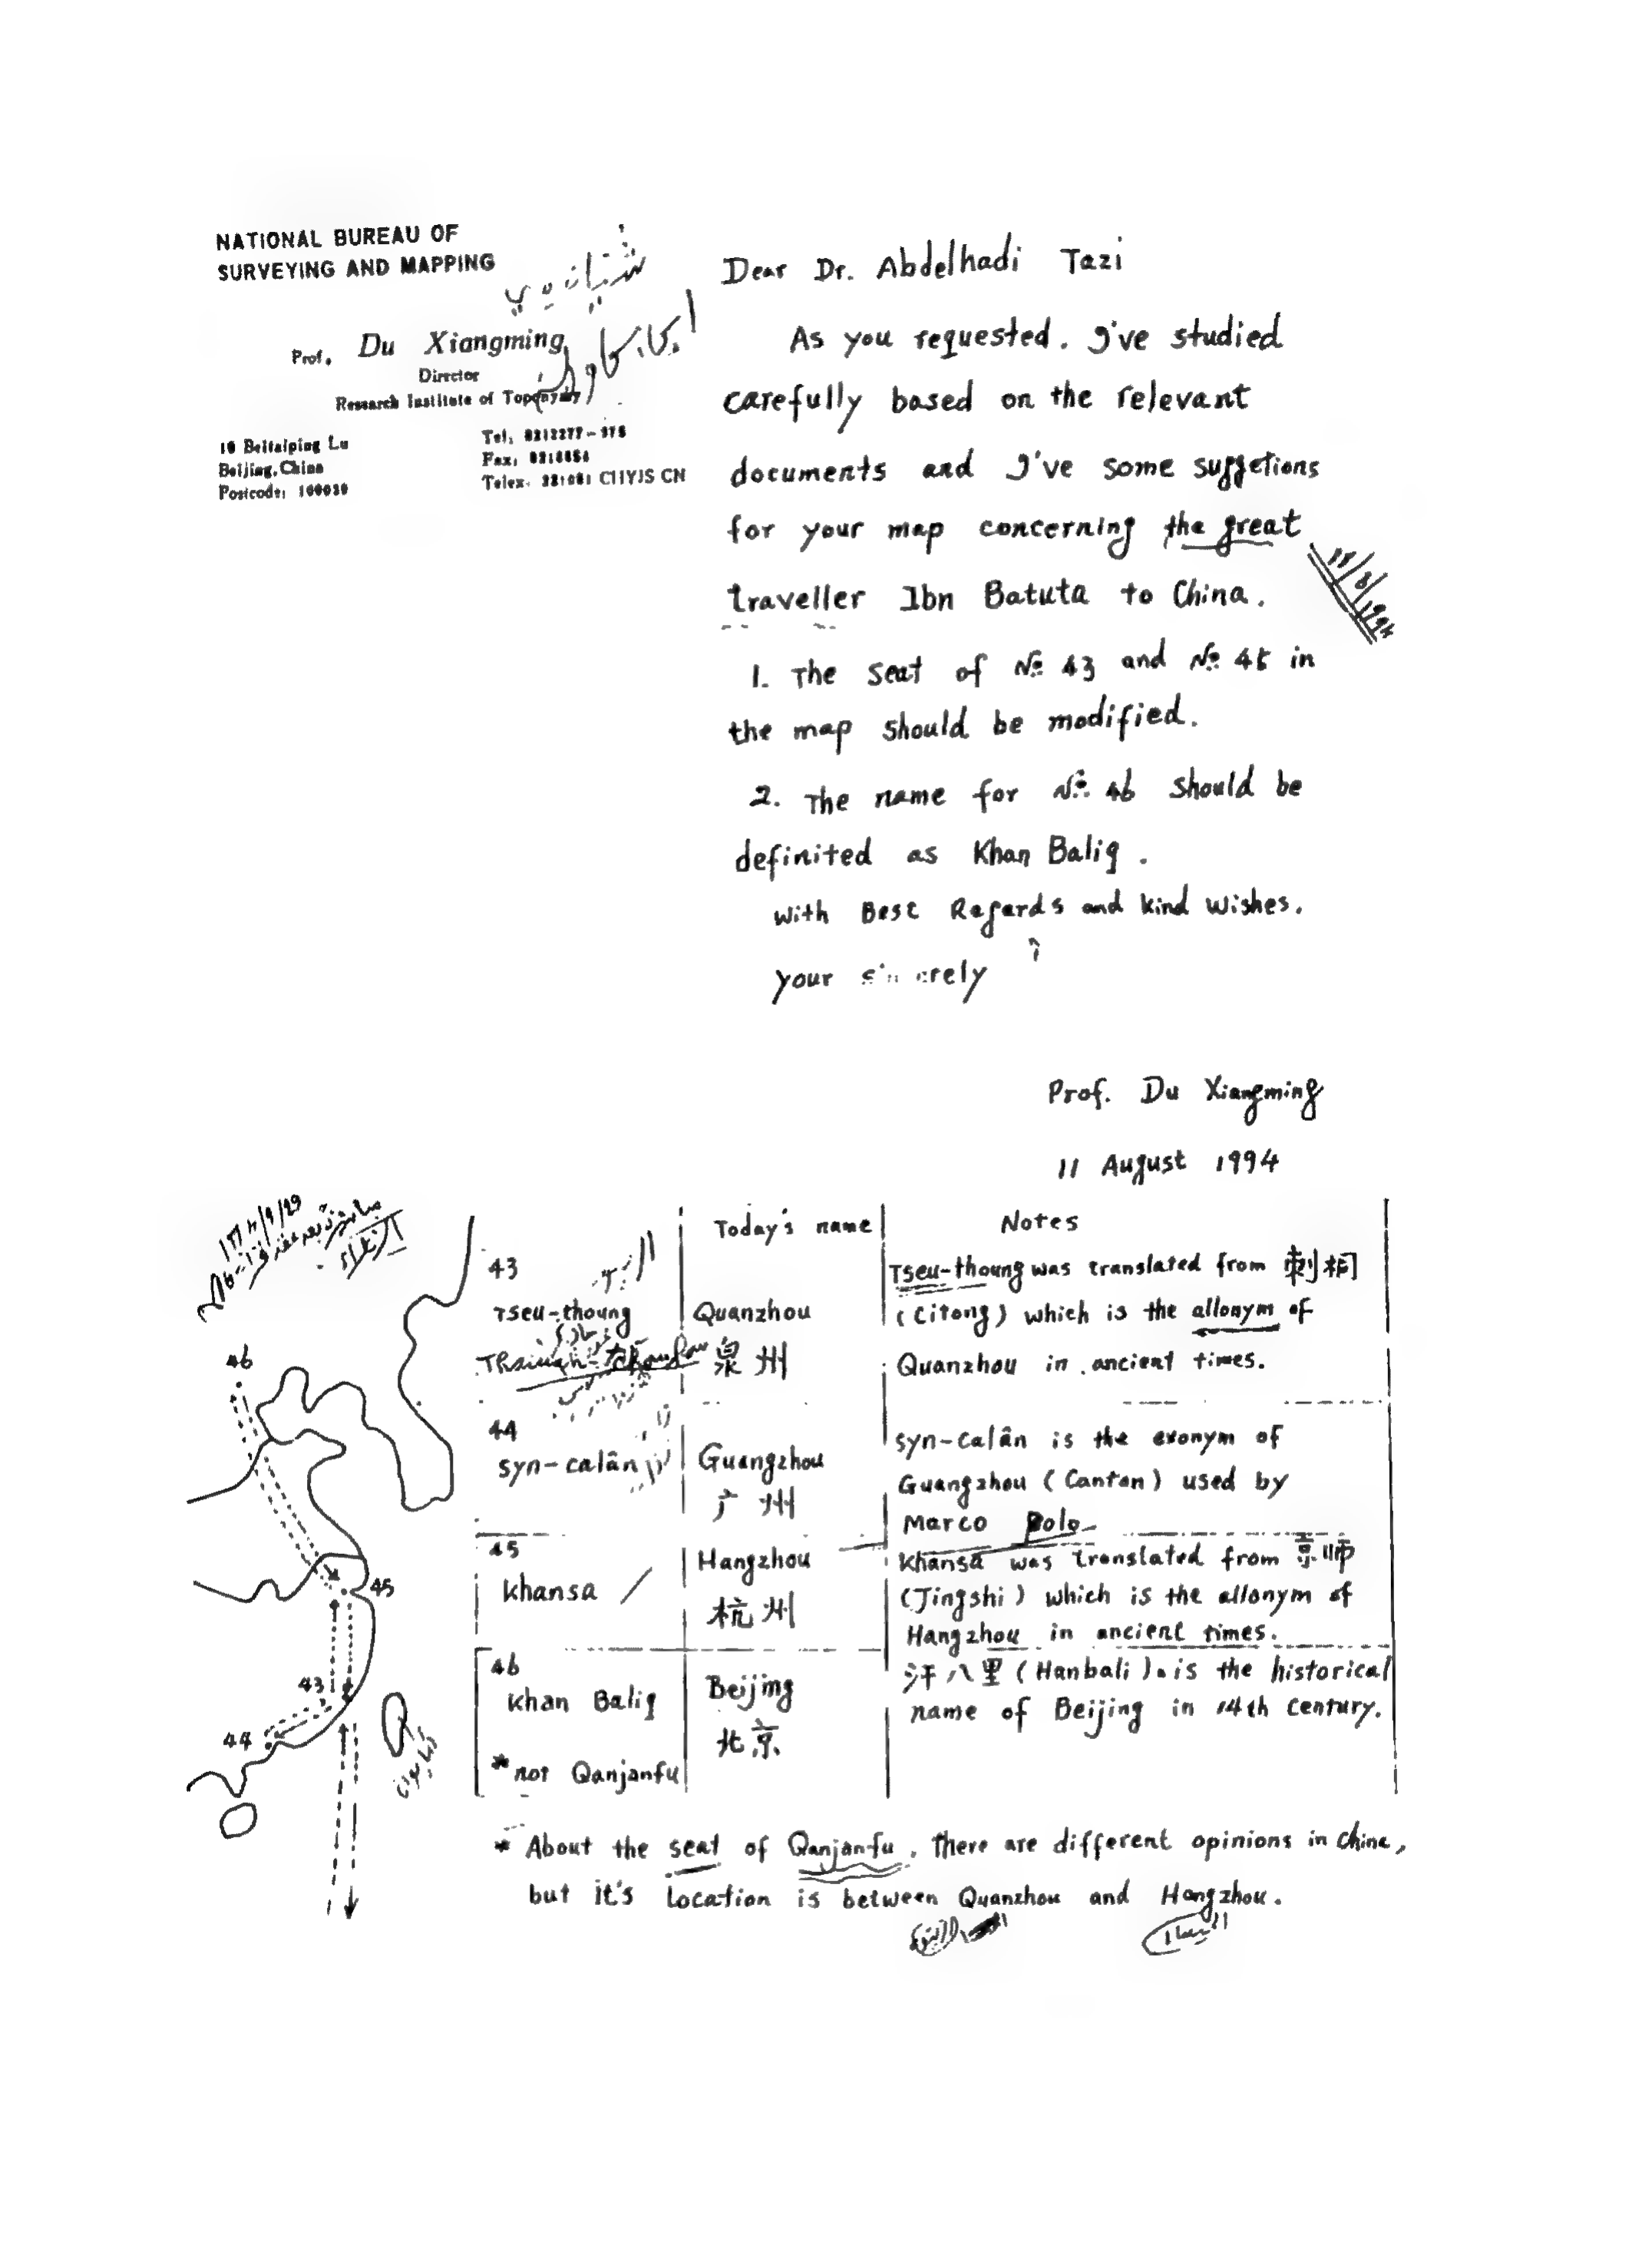 NATIONAL BUREAU OF
SURVEYING AND MAPPING
Prof. Du Xiangming
Director
Research Institute of Toponymy
Beijing, China
Dear Dr. Abdelhadi Tazi
As you requested. I've studied
carefully based on the relevant
documents and I've some suggetions
for your map concerning the great
traveller Ibn Batuta to China.
1. The seat of № 43 and № 45 in
the map should be modified.
2. The name for № 46 should be
definited as Khan Balig.
with Best Regards and kind wishes.
your
Prof. Du Xiangming
11 August 1994
Today's name
Notes
43
Tseu-thoung
Quanzhou
泉州
Tseu-thoung was translated from 刺桐
(Citong) which is the allonym of
Quanzhou in ancient times.
44
syn-calân
Guangzhou
广州
syn-calân is the exonym of
Guangzhou (Canton) used by
Marco Polo
45
khansa
Hangzhou
杭州
khansa was translated from 京师
(Jingshi) which is the allonym of
Hangzhou in ancient times.
46
khan Balig
*not Qanjanfu
Beijing
北京
汗八里 (Hanbali) is the historical
name of Beijing in 14th century.
46
45
43
44
* About the seat of Qanjanfu, there are different opinions in China,
but it's location is between Quanzhou and Hangzhou.